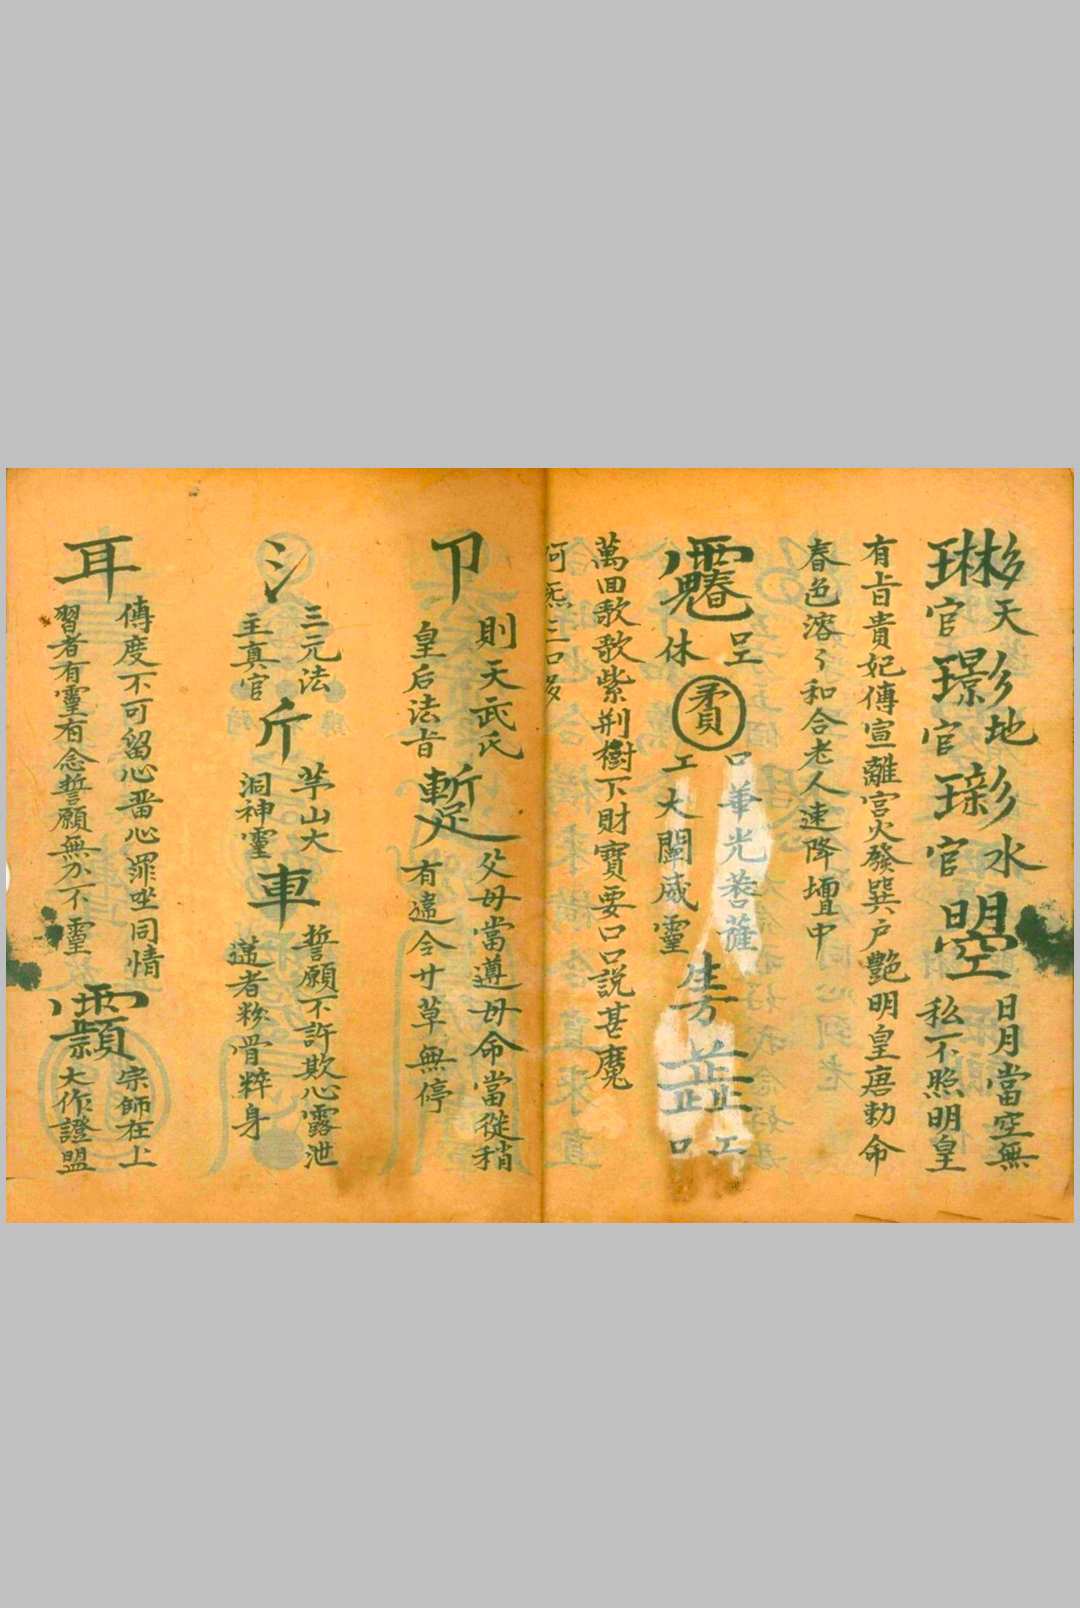 天 地 水
官 官 官
日月當空無
私不照明皇
有旨貴妃傳宣離宮火發巽戶艷明皇唐勅命
春色溶〻和合老人速降壇中
口華光菩薩
休 工大闡威靈
工
口
萬回歌歌紫荆樹下財寶要口口說甚魔
何 三口多
則天武氏
皇后法旨
父母當遵母命當從稍
有違令廿草無停
三元法
主真官
斤
茅山大
洞神靈
車
誓願不許欺心露泄
違者粉骨粹身
耳
傳度不可留心嗇心罪坐同情
習者有靈有念誓願無不靈
宗師在上
大作證盟